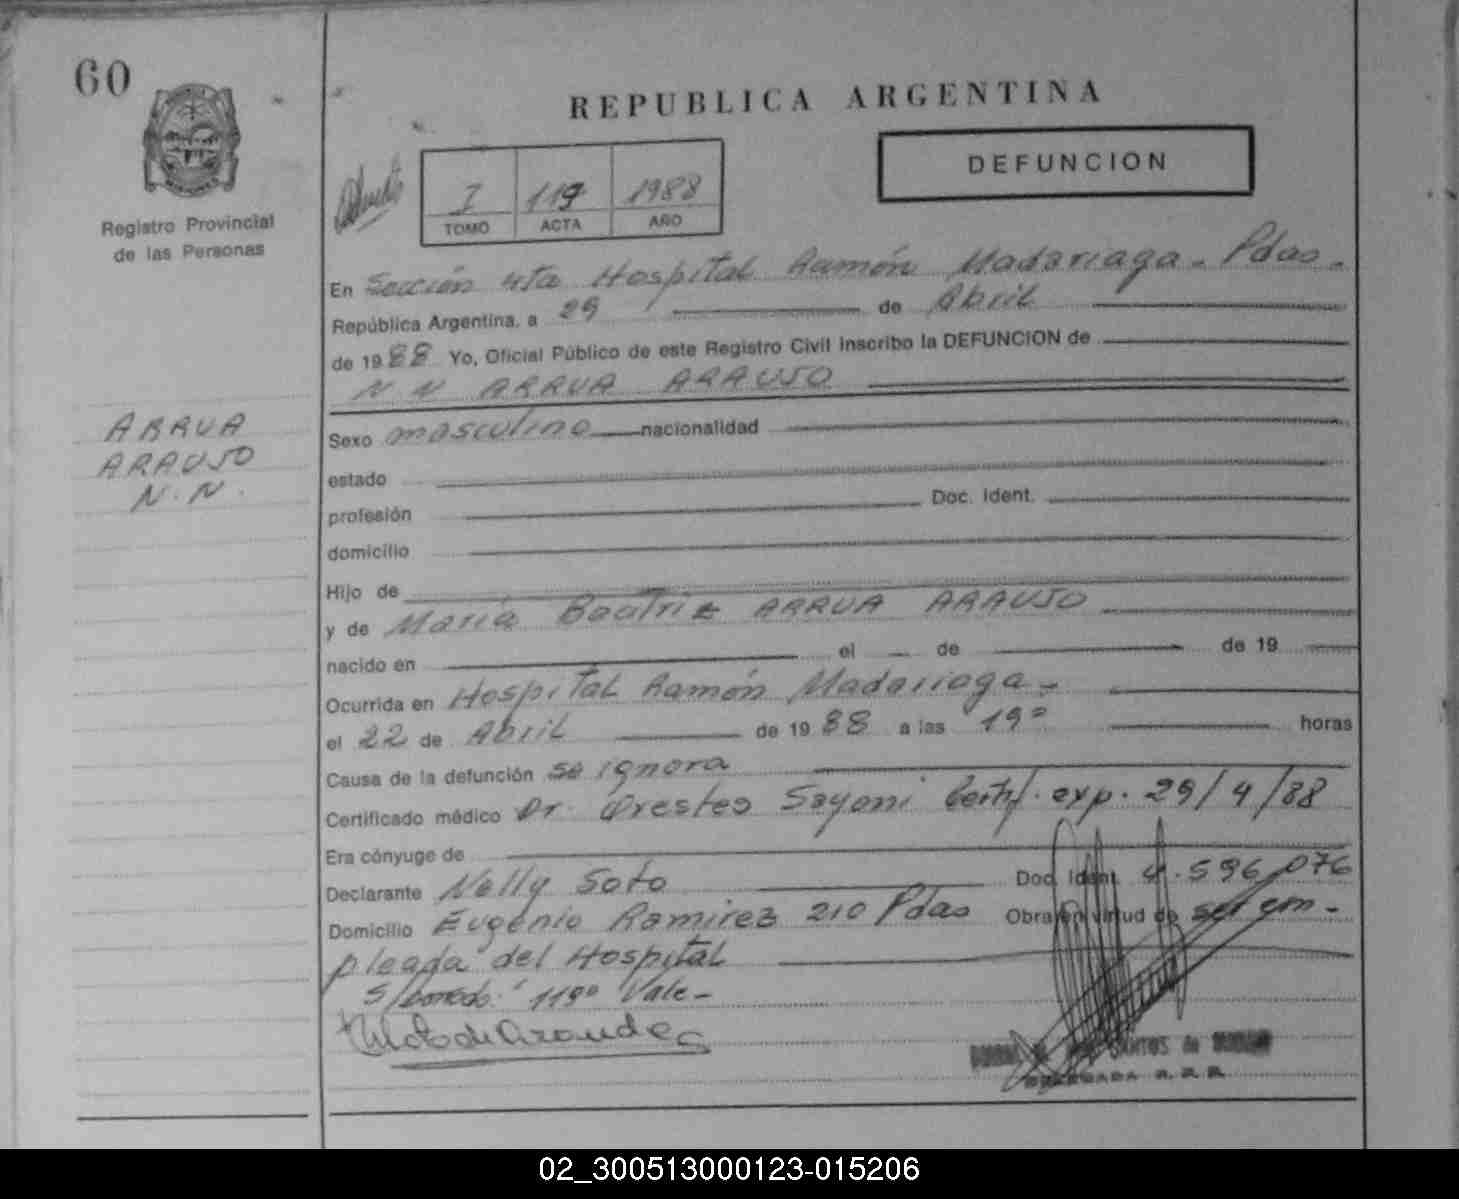 60
REPUBLICA ARGENTINA
DEFUNCION
Registro Provincial
de las Personas
I 119 1988
TOMO ACTA AÑO
En Sección 4ta Hospital Ramón Madariaga - Pdas -
República Argentina, a 29 de Abril
de 1988 Yo, Oficial Público de este Registro Civil inscribo la DEFUNCION de
N N ARRUA ARAUJO
ARRUA
ARAUJO
N. N.
Sexo masculino nacionalidad
estado
profesión Doc. Ident.
domicilio
Hijo de
y de María Beatriz ARRUA ARAUJO
nacido en el de de 19
Ocurrida en Hospital Ramón Madariaga -
el 22 de Abril de 1988 a las 19º horas
Causa de la defunción se ignora
Certificado médico Dr. Orestes Certif. exp. 29/4/88
Era cónyuge de
Declarante Nelly Soto Doc. Ident. 4.596.076
Domicilio Eugenio Ramirez 210 Pdas Obra en virtud de ser em-
pleada del Hospital
S/borrado: "119" Vale -
SANTOS de
DELEGADA R. P. P.
02_300513000123-015206